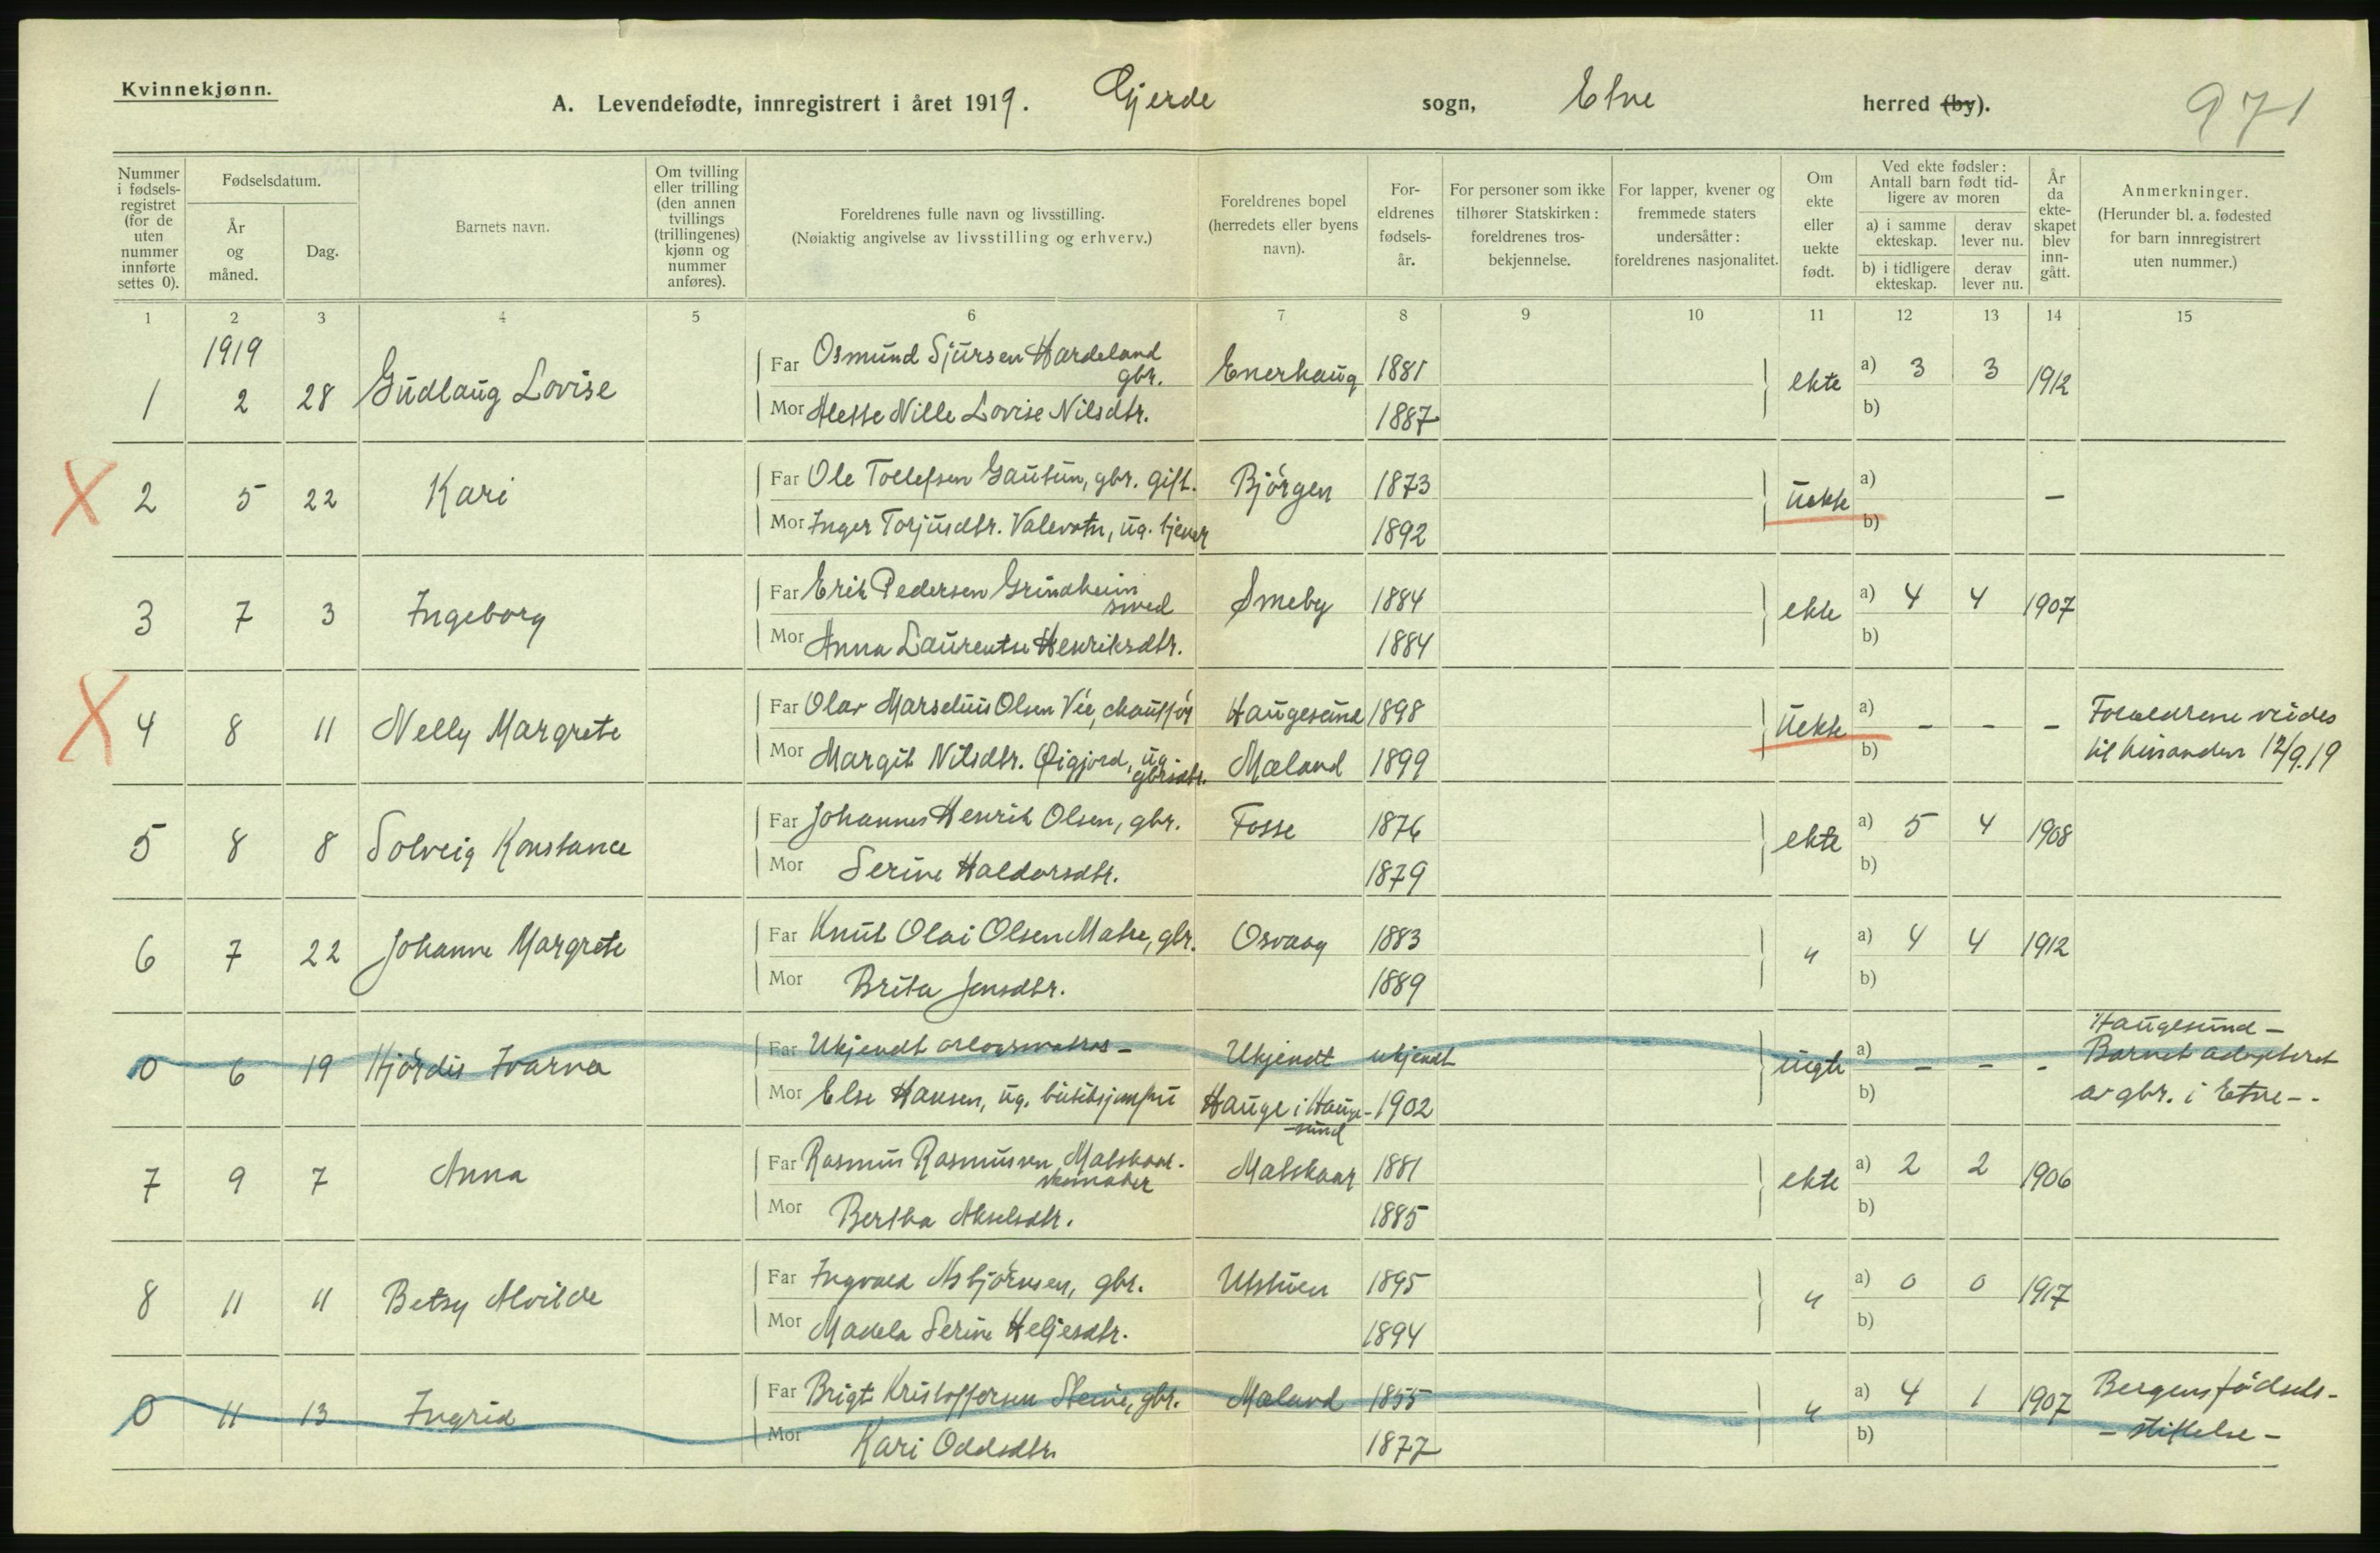 Kvinnekjønn.
A. Levendefødte, innregistrert i året 1919. Gjerde sogn, Etne herred (by). 971
Nummer i fødsels-registret (for de uten nummer innførte settes 0).
Fødselsdatum.
År og måned.
Dag.
Barnets navn.
Om tvilling eller trilling (den annen tvillings (trillingenes) kjønn og nummer anføres).
Foreldrenes fulle navn og livsstilling.
(Nøiaktig angivelse av livsstilling og erhverv.)
Foreldrenes bopel (herredets eller byens navn).
For-eldrenes fødsels-år.
For personer som ikke tilhører Statskirken: foreldrenes tros-bekjennelse.
For lapper, kvener og fremmede staters undersåtter: foreldrenes nasjonalitet.
Om ekte eller uekte født.
Ved ekte fødsler: Antall barn født tid-ligere av moren
a) i samme ekteskap. derav lever nu.
b) i tidligere ekteskap. derav lever nu.
År da ekte-skapet blev inn-gått.
Anmerkninger.
(Herunder bl. a. fødested for barn innregistrert uten nummer.)
1 2 3 4 5 6 7 8 9 10 11 12 13 14 15
1919
1 2 28 Gudlaug Lovise
Far Osmund Sjursen Hardeland gbr. Enerhaug 1881 ekte a) 3 3 1912
Mor Mette Nille Lovise Nilsdtr. 1887 b)
X 2 5 22 Kari
Far Ole Tollefsen Gautun, gbr. gift. Bjørgen 1873 uekte a) –
Mor Inger Torjusdtr. Valevatn, ug. tjener 1892 b)
3 7 3 Ingeborg
Far Erik Pedersen Grindheim smed Smeby 1884 ekte a) 4 4 1907
Mor Anna Laurentse Henriksdtr. 1884 b)
X 4 8 11 Nelly Margrete
Far Olav Marselius Olsen Vie, chauffør Haugesund 1898 uekte a) – – – Forældrene viedes
Mor Margit Nilsdtr. Øigjord, ug. gbrsdtr. Mæland 1899 b) til hinanden 12/9.19
5 8 8 Solveig Konstance
Far Johannes Henrik Olsen, gbr. Fosse 1876 ekte a) 5 4 1908
Mor Serine Haldorsdtr. 1879 b)
6 7 22 Johanne Margrete
Far Knut Olai Olsen Matre, gbr. Osvaag 1883 " a) 4 4 1912
Mor Brita Jensdtr. 1889 b)
0 6 19 Hjørdis Ivarna
Far Ukjendt orlogsmatros – Ukjendt ukjendt uegte a) – – – Haugesund – Barnet adopteret
Mor Else Hansen, ug. butiksjomfru Hauge i Hauge-sund – 1902 b) av gbr. i Etne –.
7 9 7 Anna
Far Rasmus Rasmussen Matskaar. Matskaar 1881 ekte a) 2 2 1906
Mor Bertha Akselsdtr. 1885 b)
8 11 11 Betsy Alvilde
Far Ingvald Asbjørnsen, gbr. Utstuen 1895 " a) 0 0 1917
Mor Makela Serine Heljesdtr. 1894 b)
0 11 13 Ingrid
Far Brigt Kristoffersen Steine, gbr. Mæland 1855 " a) 4 1 1907 Bergens fødsels-
Mor Kari Oddsdtr. 1877 b) – stiftelse –